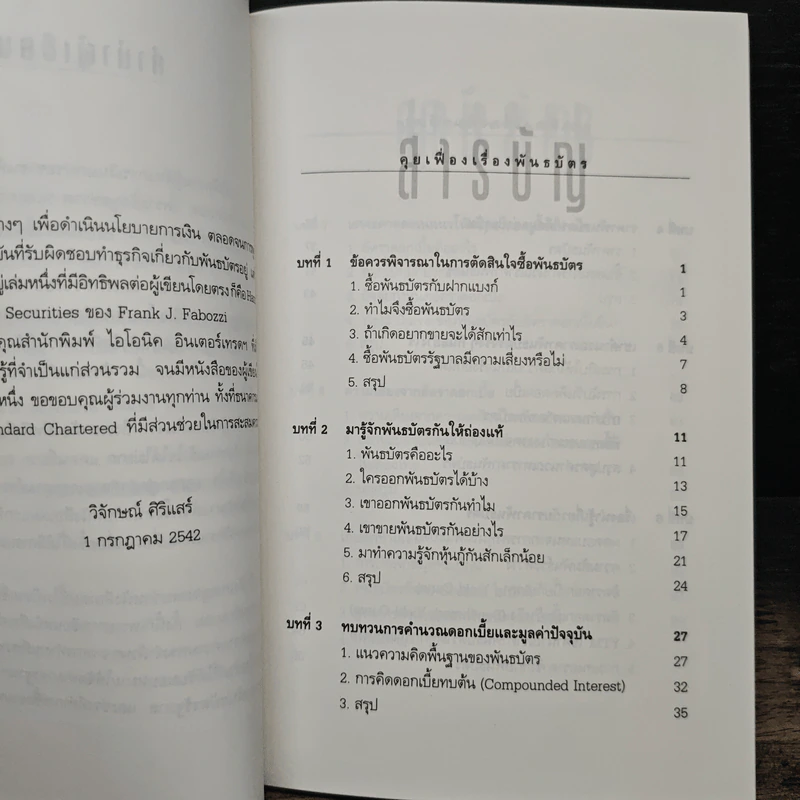 างๆ เพื่อดำเนินนโยบายการเงิน ตลอดจน
บันที่รับผิดชอบทำธุรกิจเกี่ยวกับพันธบัตรอยู่
ญ่เล่มหนึ่งที่มีอิทธิพลต่อผู้เขียนโดยตรงก็คือ
Securities ของ Frank J. Fabozzi
คุณสำนักพิมพ์ ไอโอนิค อินเตอร์เทรดฯ
รู้ที่จำเป็นแก่ส่วนรวม จนมีหนังสือของ
หนึ่ง ขอขอบคุณผู้ร่วมงานทุกท่าน ทั้งที่ธนาคาร
ndard Chartered ที่มีส่วนช่วยในการสะสม
วิจักษณ์ ศิริแสร์
1 กรกฎาคม 2542
สารบัญ
คุยเฟื่องเรื่องพันธบัตร
บทที่ 1 ข้อควรพิจารณาในการตัดสินใจซื้อพันธบัตร 1
1. ซื้อพันธบัตรกับฝากแบงก์ 1
2. ทำไมจึงซื้อพันธบัตร 3
3. ถ้าเกิดอยากขายจะได้สักเท่าไร 4
4. ซื้อพันธบัตรรัฐบาลมีความเสี่ยงหรือไม่ 7
5. สรุป 8
บทที่ 2 มารู้จักพันธบัตรกันให้ถ่องแท้ 11
1. พันธบัตรคืออะไร 11
2. ใครออกพันธบัตรได้บ้าง 13
3. เขาออกพันธบัตรกันทำไม 15
4. เขาขายพันธบัตรกันอย่างไร 17
5. มาทำความรู้จักหุ้นกู้กันสักเล็กน้อย 21
6. สรุป 24
บทที่ 3 ทบทวนการคำนวณดอกเบี้ยและมูลค่าปัจจุบัน 27
1. แนวความคิดพื้นฐานของพันธบัตร 27
2. การคิดดอกเบี้ยทบต้น (Compounded Interest) 32
3. สรุป 35